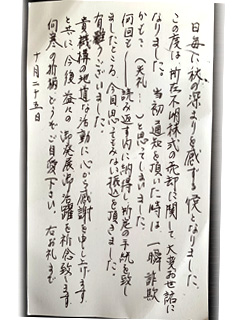 日毎に秋の深まりを感ずる候となりました。
この度は所在不明株式の売却に関して大変お世話に
なりました。当初通知を頂いた時は、一瞬詐欺
かも…(失礼…)と思ってしまいました。
何回も読み返す内に納得し所定の手続を致し
ましたところ、今回思ってもみない振込を頂きました。
有難うございました。
貴機構の地道な活動に心から感謝を申し上げます
と共に今後益々の御発展御活躍を祈念致します。
何卒の折柄どうぞご自愛下さい。 右お礼まで
十月二十五日